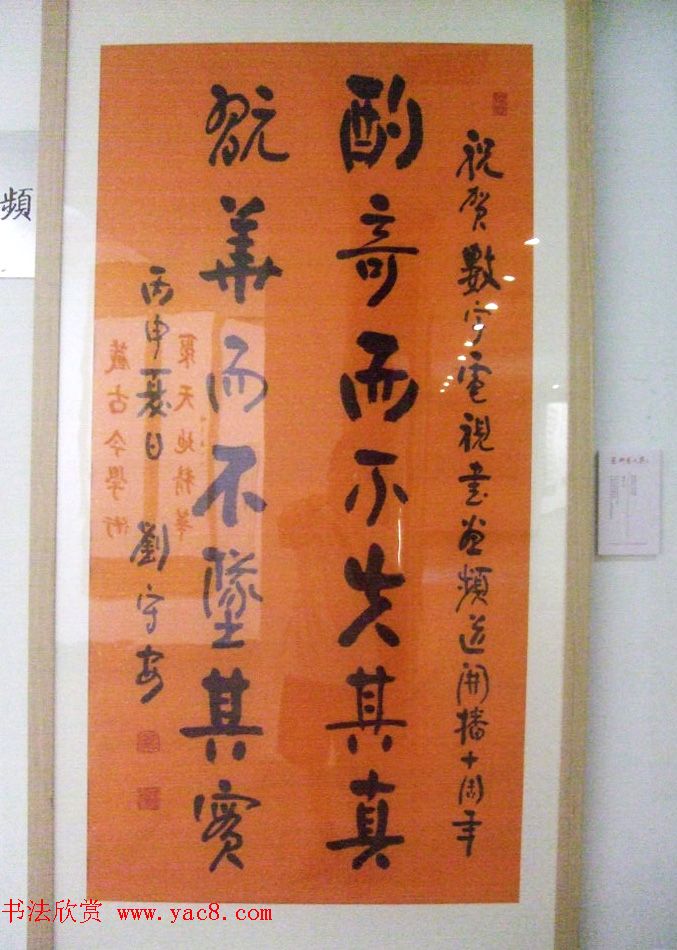 祝賀數字電視書畫頻道開播十周年
酌奇而不失其真
翫華而不墜其實
丙申夏日 劉守安
聚天地精華
藏古今學術
頻
书法欣赏 www.yac8.com